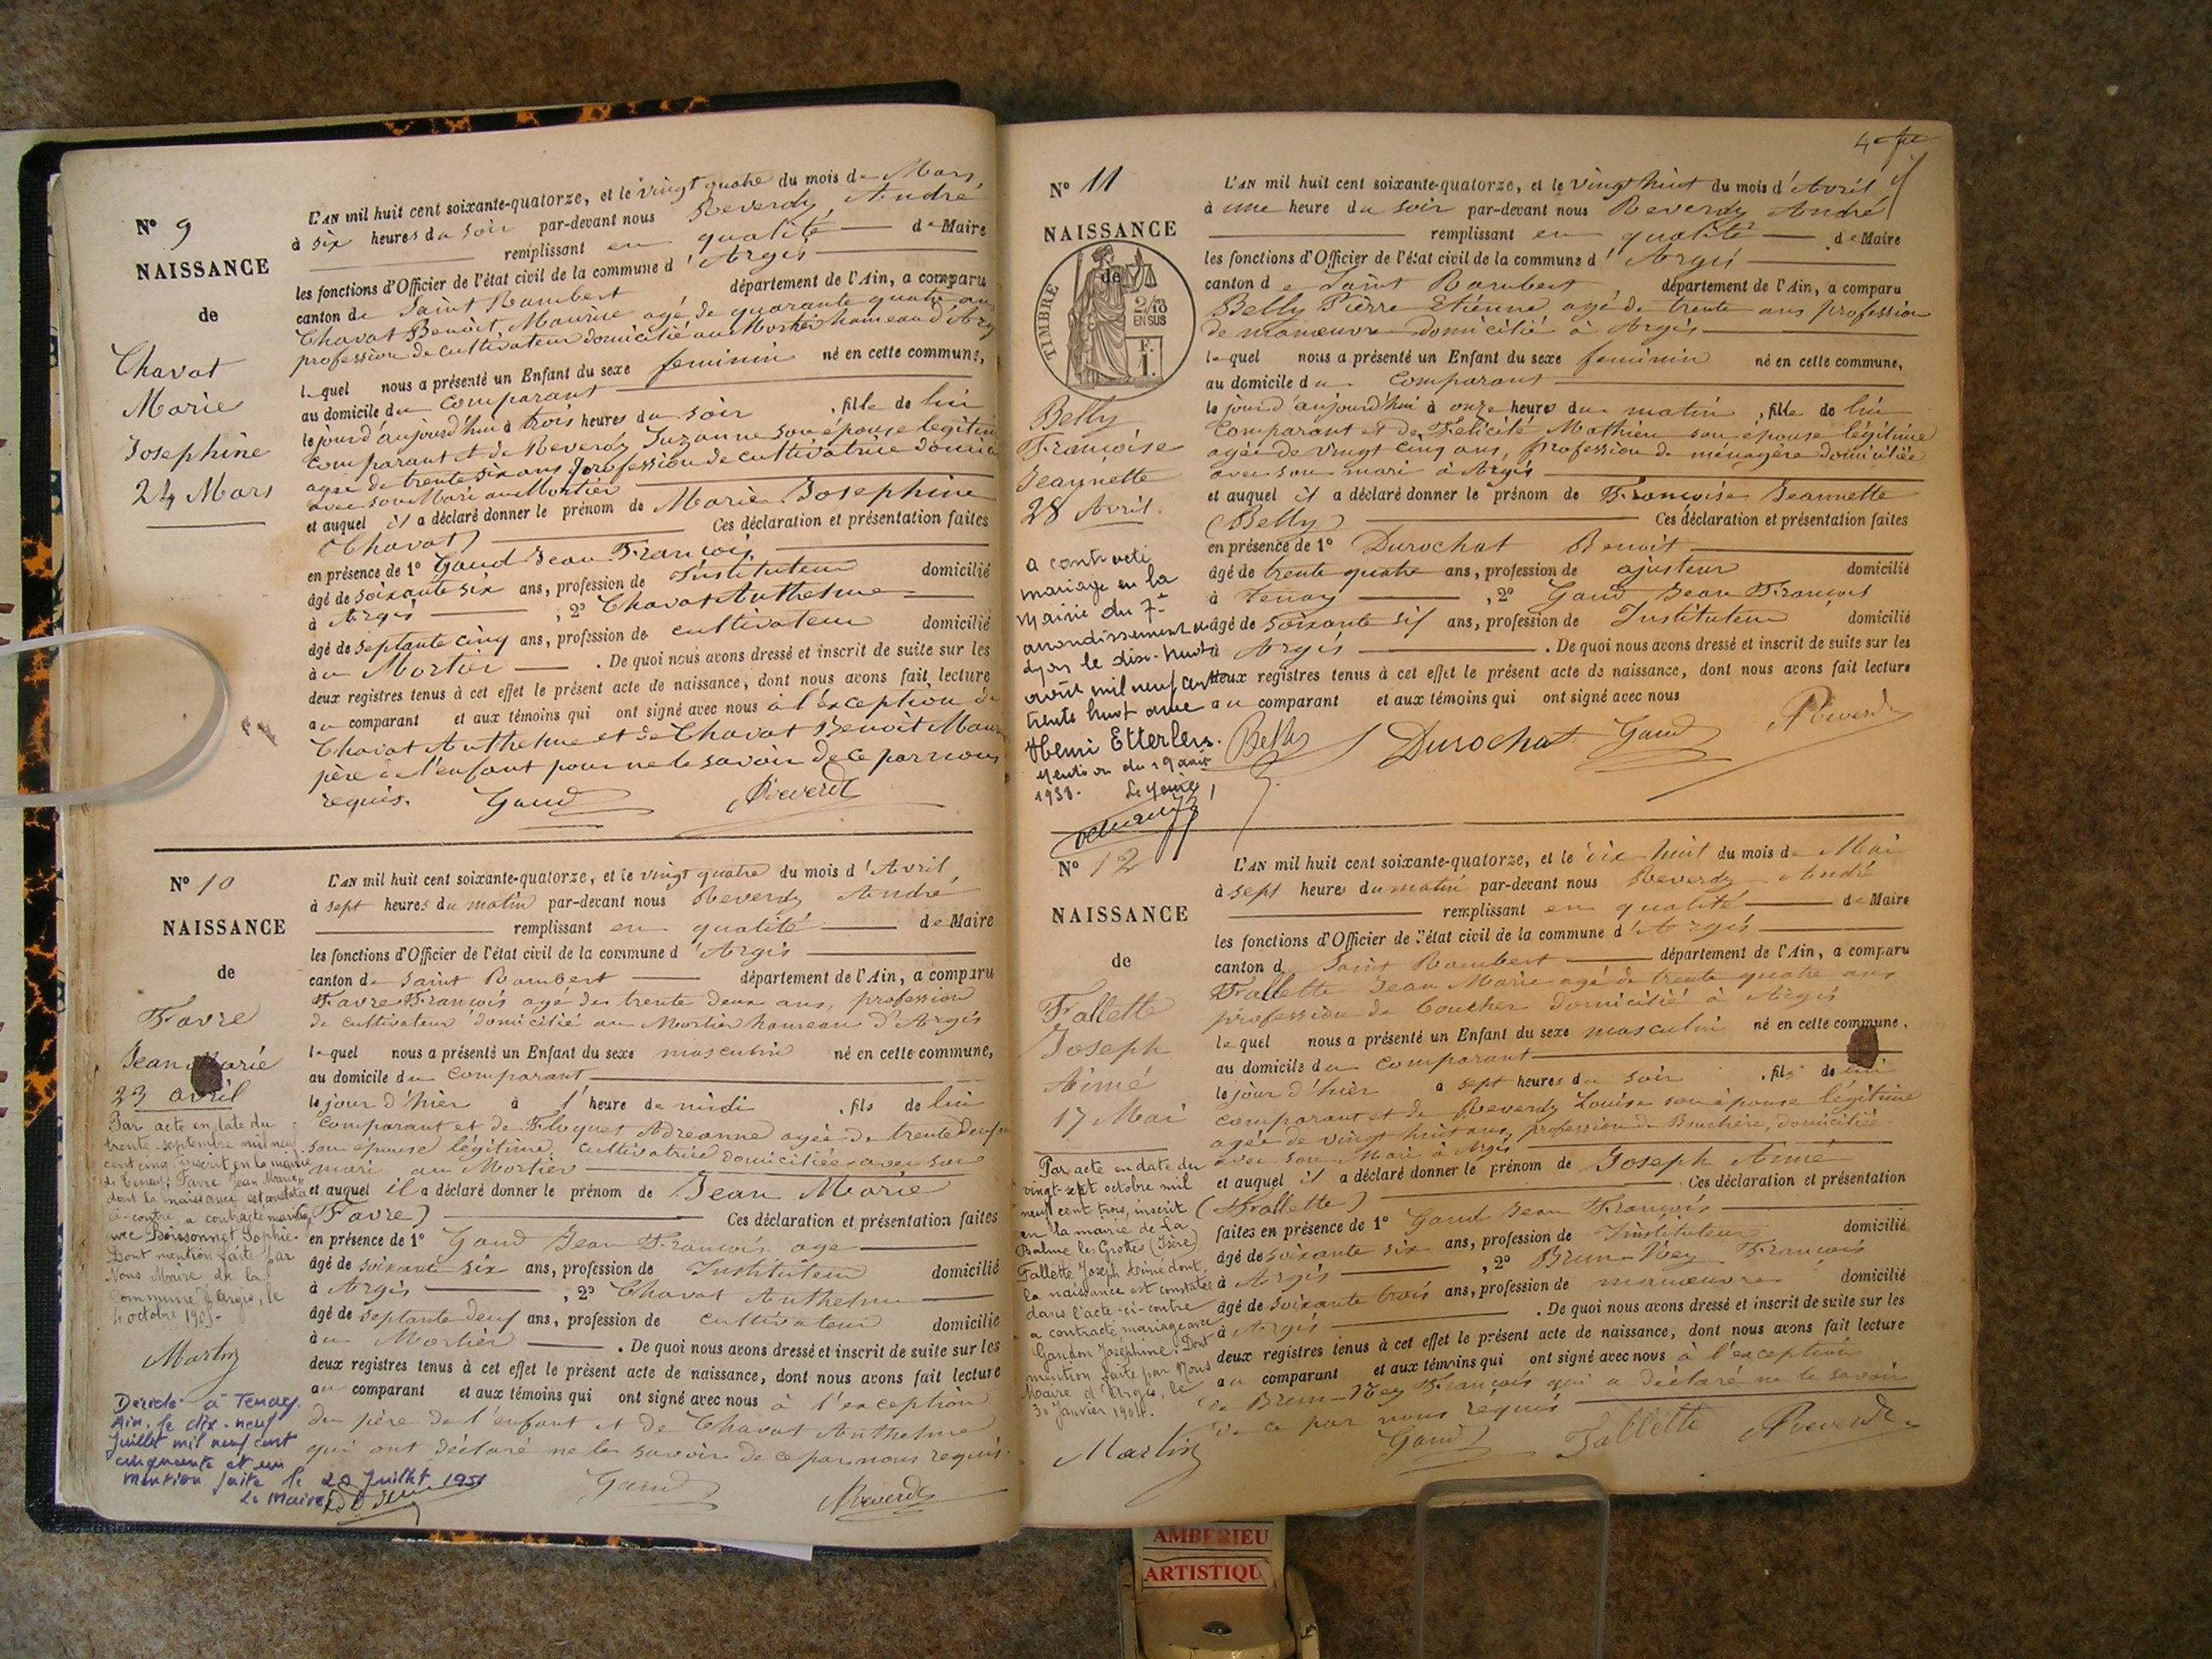 N° 9
NAISSANCE
de
Chavat
Marie
Josephine
24 Mars
L'AN mil huit cent soixante-quatorze, et le vingt quatre du mois de Mars,
à six heures du soir par-devant nous Reverdy André
remplissant en qualité de Maire
les fonctions d'Officier de l'état civil de la commune d'Argis
canton de Saint Rambert département de l'Ain, a comparu
Chavat Benoit Maurice agé de quarante quatre ans
profession de cultivateur domicilié au Mortier hameau d'Argis
lequel nous a présenté un Enfant du sexe feminin né en cette commune,
au domicile du comparant
le jour d'aujourd'hui à trois heures du soir, fille de lui
comparant et de Reverdy Suzanne son épouse legitime
agée de trente six ans profession de cultivatrice
avec son Mari au Mortier
et auquel il a déclaré donner le prénom de Marie Josephine
(Chavat) Ces déclaration et présentation faites
en présence de 1° Gaud Jean François
âgé de soixante six ans, profession de Instituteur domicilié
à Argis, 2° Chavat Anthelme
âgé de septante cinq ans, profession de cultivateur domicilié
au Mortier. De quoi nous avons dressé et inscrit de suite sur les
deux registres tenus à cet effet le présent acte de naissance, dont nous avons fait lecture
au comparant et aux témoins qui ont signé avec nous à l'exception de
Chavat Anthelme et de Chavat Benoit Maurice
père de l'enfant pour ne le savoir de ce par nous
requis. Gaud Reverdy
N° 10
NAISSANCE
de
Favre
Jean Marie
23 avril
Par acte en date du
trente septembre mil neuf
cent cinq inscrit en la mairie
de Tenay, Favre Jean Marie,
dont la naissance est constatée
ci-contre a contracté mariage
avec Boissonnet Sophie.
Dont mention faite par
Nous Maire de la
Commune d'Argis, le
4 octobre 1905.
Martin
Décédé à Tenay
Ain. le dix-neuf
Juillet mil neuf cent
cinquante et un
mention faite le 20 Juillet 1951
Le Maire
L'AN mil huit cent soixante-quatorze, et le vingt quatre du mois d'Avril,
à sept heures du matin par-devant nous Reverdy André
remplissant en qualité de Maire
les fonctions d'Officier de l'état civil de la commune d'Argis
canton de Saint Rambert département de l'Ain, a comparu
Favre François agé de trente deux ans, profession
de cultivateur domicilié au Mortier hameau d'Argis
lequel nous a présenté un Enfant du sexe masculin né en cette commune,
au domicile du comparant
le jour d'hier à l'heure de midi, fils de lui
comparant et de Floquet Adreanne agée de trente
son épouse légitime, cultivatrice domiciliée avec son
mari au Mortier
et auquel il a déclaré donner le prénom de Jean Marie
(Favre) Ces déclaration et présentation faites
en présence de 1° Gaud Jean François age
âgé de soixante six ans, profession de Instituteur domicilié
à Argis, 2° Chavat Anthelme
âgé de septante deux ans, profession de cultivateur domicilié
au Mortier. De quoi nous avons dressé et inscrit de suite sur les
deux registres tenus à cet effet le présent acte de naissance, dont nous avons fait lecture
au comparant et aux témoins qui ont signé avec nous à l'exception
du père de l'enfant et de Chavat Anthelme
qui ont déclaré ne le savoir de ce par nous requis.
Gaud Reverdy
4
N° 11
NAISSANCE
de
TIMBRE
2/10
EN SUS
F.
1.
Belly
Françoise
Jeannette
28 Avril.
a contracté
mariage en la
Mairie du 7e
arrondissement de
Lyon le dix-huit
août mil neuf cent
trente huit avec
Henri Etterlen.
Mention du 19 août
1938. Le Maire,
L'AN mil huit cent soixante-quatorze, et le vingt huit du mois d'Avril
à une heure du soir par-devant nous Reverdy André
remplissant en qualité de Maire
les fonctions d'Officier de l'état civil de la commune d'Argis
canton de Saint Rambert, département de l'Ain, a comparu
Belly Pierre Etienne agé de trente ans profession
de manœuvre domicilié à Argis
lequel nous a présenté un Enfant du sexe feminin né en cette commune,
au domicile du comparant
le jour d'aujourd'hui à onze heures du matin, fille de lui
comparant et de Félicité Mathieu son épouse légitime
agée de vingt cinq ans, profession de ménagère domiciliée
avec son mari à Argis
et auquel il a déclaré donner le prénom de Françoise Jeannette
(Belly) Ces déclaration et présentation faites
en présence de 1° Durochat Benoit
âgé de trente quatre ans, profession de ajusteur domicilié
à Tenay, 2° Gaud Jean François
âgé de soixante six ans, profession de Instituteur domicilié
à Argis. De quoi nous avons dressé et inscrit de suite sur les
deux registres tenus à cet effet le présent acte de naissance, dont nous avons fait lecture
au comparant et aux témoins qui ont signé avec nous
Belly Durochat Gaud Reverdy
N° 12
NAISSANCE
de
Fallette
Joseph
Aimé
17 Mai
Par acte en date du
vingt-sept octobre mil
neuf cent trois, inscrit
en la mairie de La
Balme les Grottes (Isère)
Fallette Joseph Aimé dont
la naissance est constatée
dans l'acte ci-contre
a contracté mariage avec
Gandon Josephine. Dont
mention faite par Nous
Maire d'Argis, le
30 Janvier 1904.
Martin
L'AN mil huit cent soixante-quatorze, et le dix huit du mois de Mai
à sept heures du matin par-devant nous Reverdy André
remplissant en qualité de Maire
les fonctions d'Officier de l'état civil de la commune d'Argis
canton d Saint Rambert département de l'Ain, a comparu
Fallette Jean Marie agé de trente quatre ans
profession de boucher domicilié à Argis
lequel nous a présenté un Enfant du sexe masculin né en cette commune,
au domicile du comparant
le jour d'hier à sept heures du soir, fils de lui
comparant et de Reverdy Louise son épouse légitime
agée de vingt huit ans, profession de Bouchère, domiciliée
avec son Mari à Argis
et auquel il a déclaré donner le prénom de Joseph Aimé
(Fallette) Ces déclaration et présentation
faites en présence de 1° Gaud Jean François
âgé de soixante six ans, profession de Instituteur domicilié
à Argis, 2° Brun-Ney François
âgé de soixante trois ans, profession de manœuvre domicilié
à Argis. De quoi nous avons dressé et inscrit de suite sur les
deux registres tenus à cet effet le présent acte de naissance, dont nous avons fait lecture
au comparant et aux témoins qui ont signé avec nous à l'exception
de Brun-Ney François qui a déclaré ne le savoir
de ce par nous requis
Gaud Fallette Reverdy
AMBERIEU
ARTISTIQU